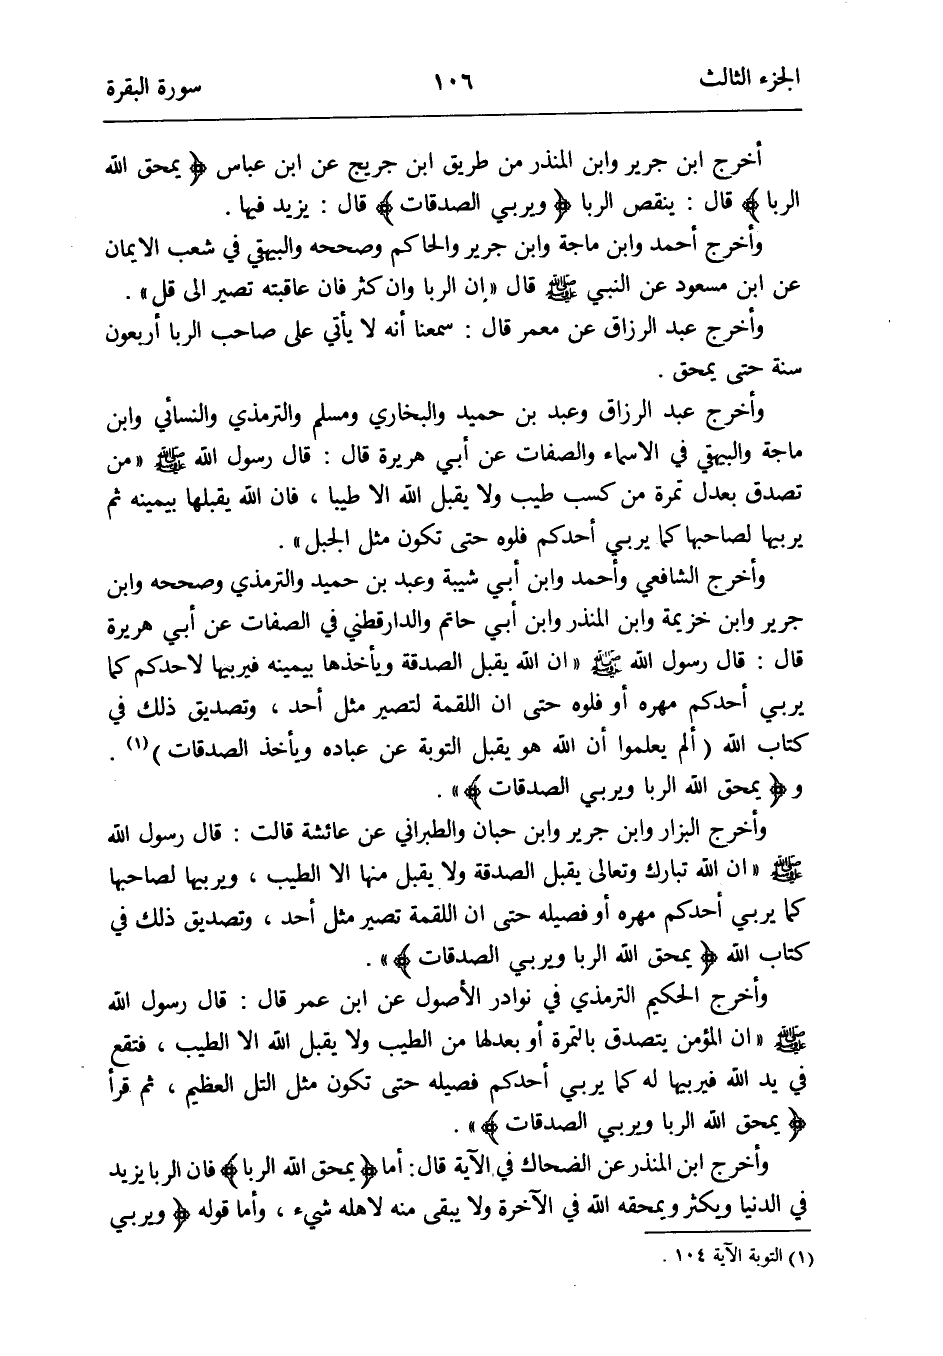 الجزء الثالث ١٠٦ سورة البقرة
أخرج ابن جرير وابن المنذر من طريق ابن جريج عن ابن عباس ﴿ يمحق الله
الربا ﴾ قال : ينقص الربا ﴿ ويربي الصدقات ﴾ قال : يزيد فيها .
وأخرج أحمد وابن ماجة وابن جرير والحاكم وصححه والبيهقي في شعب الايمان
عن ابن مسعود عن النبي ﷺ قال «إن الربا وان كثر فان عاقبته تصير الى قل» .
وأخرج عبد الرزاق عن معمر قال : سمعنا أنه لا يأتي على صاحب الربا أربعون
سنة حتى يمحق .
وأخرج عبد الرزاق وعبد بن حميد والبخاري ومسلم والترمذي والنسائي وابن
ماجة والبيهقي في الاسماء والصفات عن أبي هريرة قال : قال رسول الله ﷺ «من
تصدق بعدل تمرة من كسب طيب ولا يقبل الله الا طيبا ، فان الله يقبلها بيمينه ثم
يربيها لصاحبها كما يربي أحدكم فلوه حتى تكون مثل الجبل» .
وأخرج الشافعي وأحمد وابن أبي شيبة وعبد بن حميد والترمذي وصححه وابن
جرير وابن خزيمة وابن المنذر وابن أبي حاتم والدارقطني في الصفات عن أبي هريرة
قال : قال رسول الله ﷺ «ان الله يقبل الصدقة ويأخذها بيمينه فيربيها لاحدكم كما
يربي أحدكم مهره أو فلوه حتى ان اللقمة لتصير مثل أحد ، وتصديق ذلك في
كتاب الله ( ألم يعلموا أن الله هو يقبل التوبة عن عباده ويأخذ الصدقات )(١) .
و ﴿ يمحق الله الربا ويربي الصدقات ﴾» .
وأخرج البزار وابن جرير وابن حبان والطبراني عن عائشة قالت : قال رسول الله
ﷺ «ان الله تبارك وتعالى يقبل الصدقة ولا يقبل منها الا الطيب ، ويربيها لصاحبها
كما يربي أحدكم مهره أو فصيله حتى ان اللقمة تصير مثل أحد ، وتصديق ذلك في
كتاب الله ﴿ يمحق الله الربا ويربي الصدقات ﴾» .
وأخرج الحكيم الترمذي في نوادر الأصول عن ابن عمر قال : قال رسول الله
ﷺ «ان المؤمن يتصدق بالتمرة أو بعدلها من الطيب ولا يقبل الله الا الطيب ، فتقع
في يد الله فيربيها له كما يربي أحدكم فصيله حتى تكون مثل التل العظيم ، ثم قرأ
﴿ يمحق الله الربا ويربي الصدقات ﴾» .
وأخرج ابن المنذر عن الضحاك في الآية قال: أما ﴿ يمحق الله الربا﴾ فان الربا يزيد
في الدنيا ويكثر ويمحقه الله في الآخرة ولا يبقى منه لاهله شيء ، وأما قوله ﴿ ويربي
(١) التوبة الآية ١٠٤ .